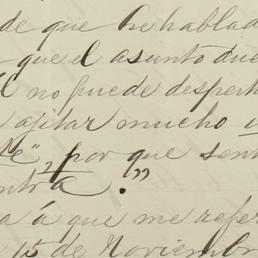 de que he hablad
que el asunto due
no puede despert
ajitar mucho
te", por que sent
ntra."
a á que me refer
15 de Noviembr